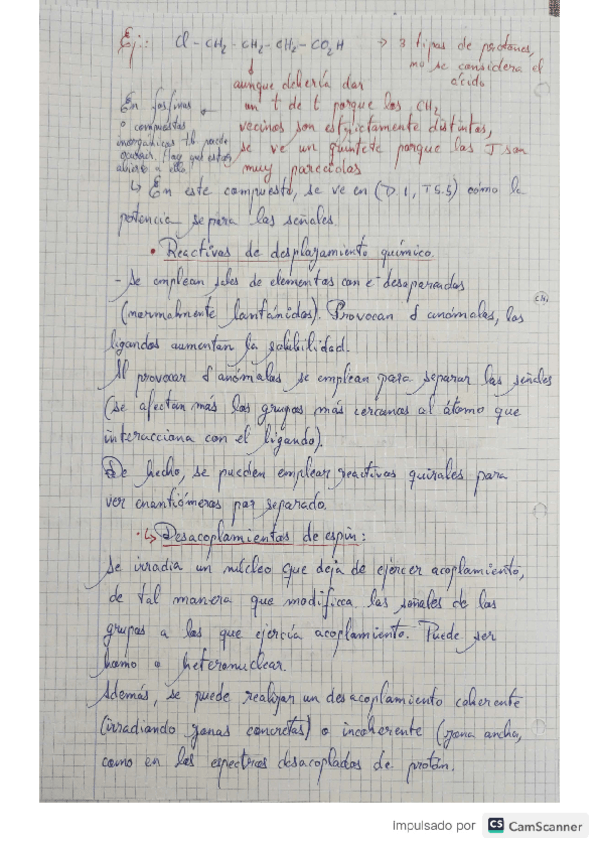 Ej.: Cl - CH2 - CH2 - CH2 - CO2H → 3 tipos de protones,
no se considera el
ácido
aunque debería dar
un t de t porque los CH2
vecinos son estrictamente distintos,
se ve un quintete porque las J son
muy parecidas
En fosfinas
o compuestos
inorgánicos tb puede
ocurrir. Hay que estar
abierto a ello.
↳ En este compuesto, se ve en (D.1, T5.5) cómo la
potencia separa las señales.
• Reactivos de desplazamiento químico.
- Se emplean sales de elementos con e- desapareados
(normalmente lantánidos). Provocan δ anómalos, los
ligandos aumentan la solubilidad.
Al provocar δ anómalos se emplean para separar las señales
(se afectan más los grupos más cercanos al átomo que
interacciona con el ligando).
De hecho, se pueden emplear reactivos quirales para
ver enantiómeros por separado.
·↳ Desacoplamientos de espín:
Se irradia un núcleo que deja de ejercer acoplamiento,
de tal manera que modifica las señales de los
grupos a los que ejercía acoplamiento. Puede ser
homo o heteronuclear.
Además, se puede realizar un desacoplamiento coherente
(irradiando zonas concretas) o incoherente (zona ancha,
como en los espectros desacoplados de protón.
Impulsado por CS CamScanner